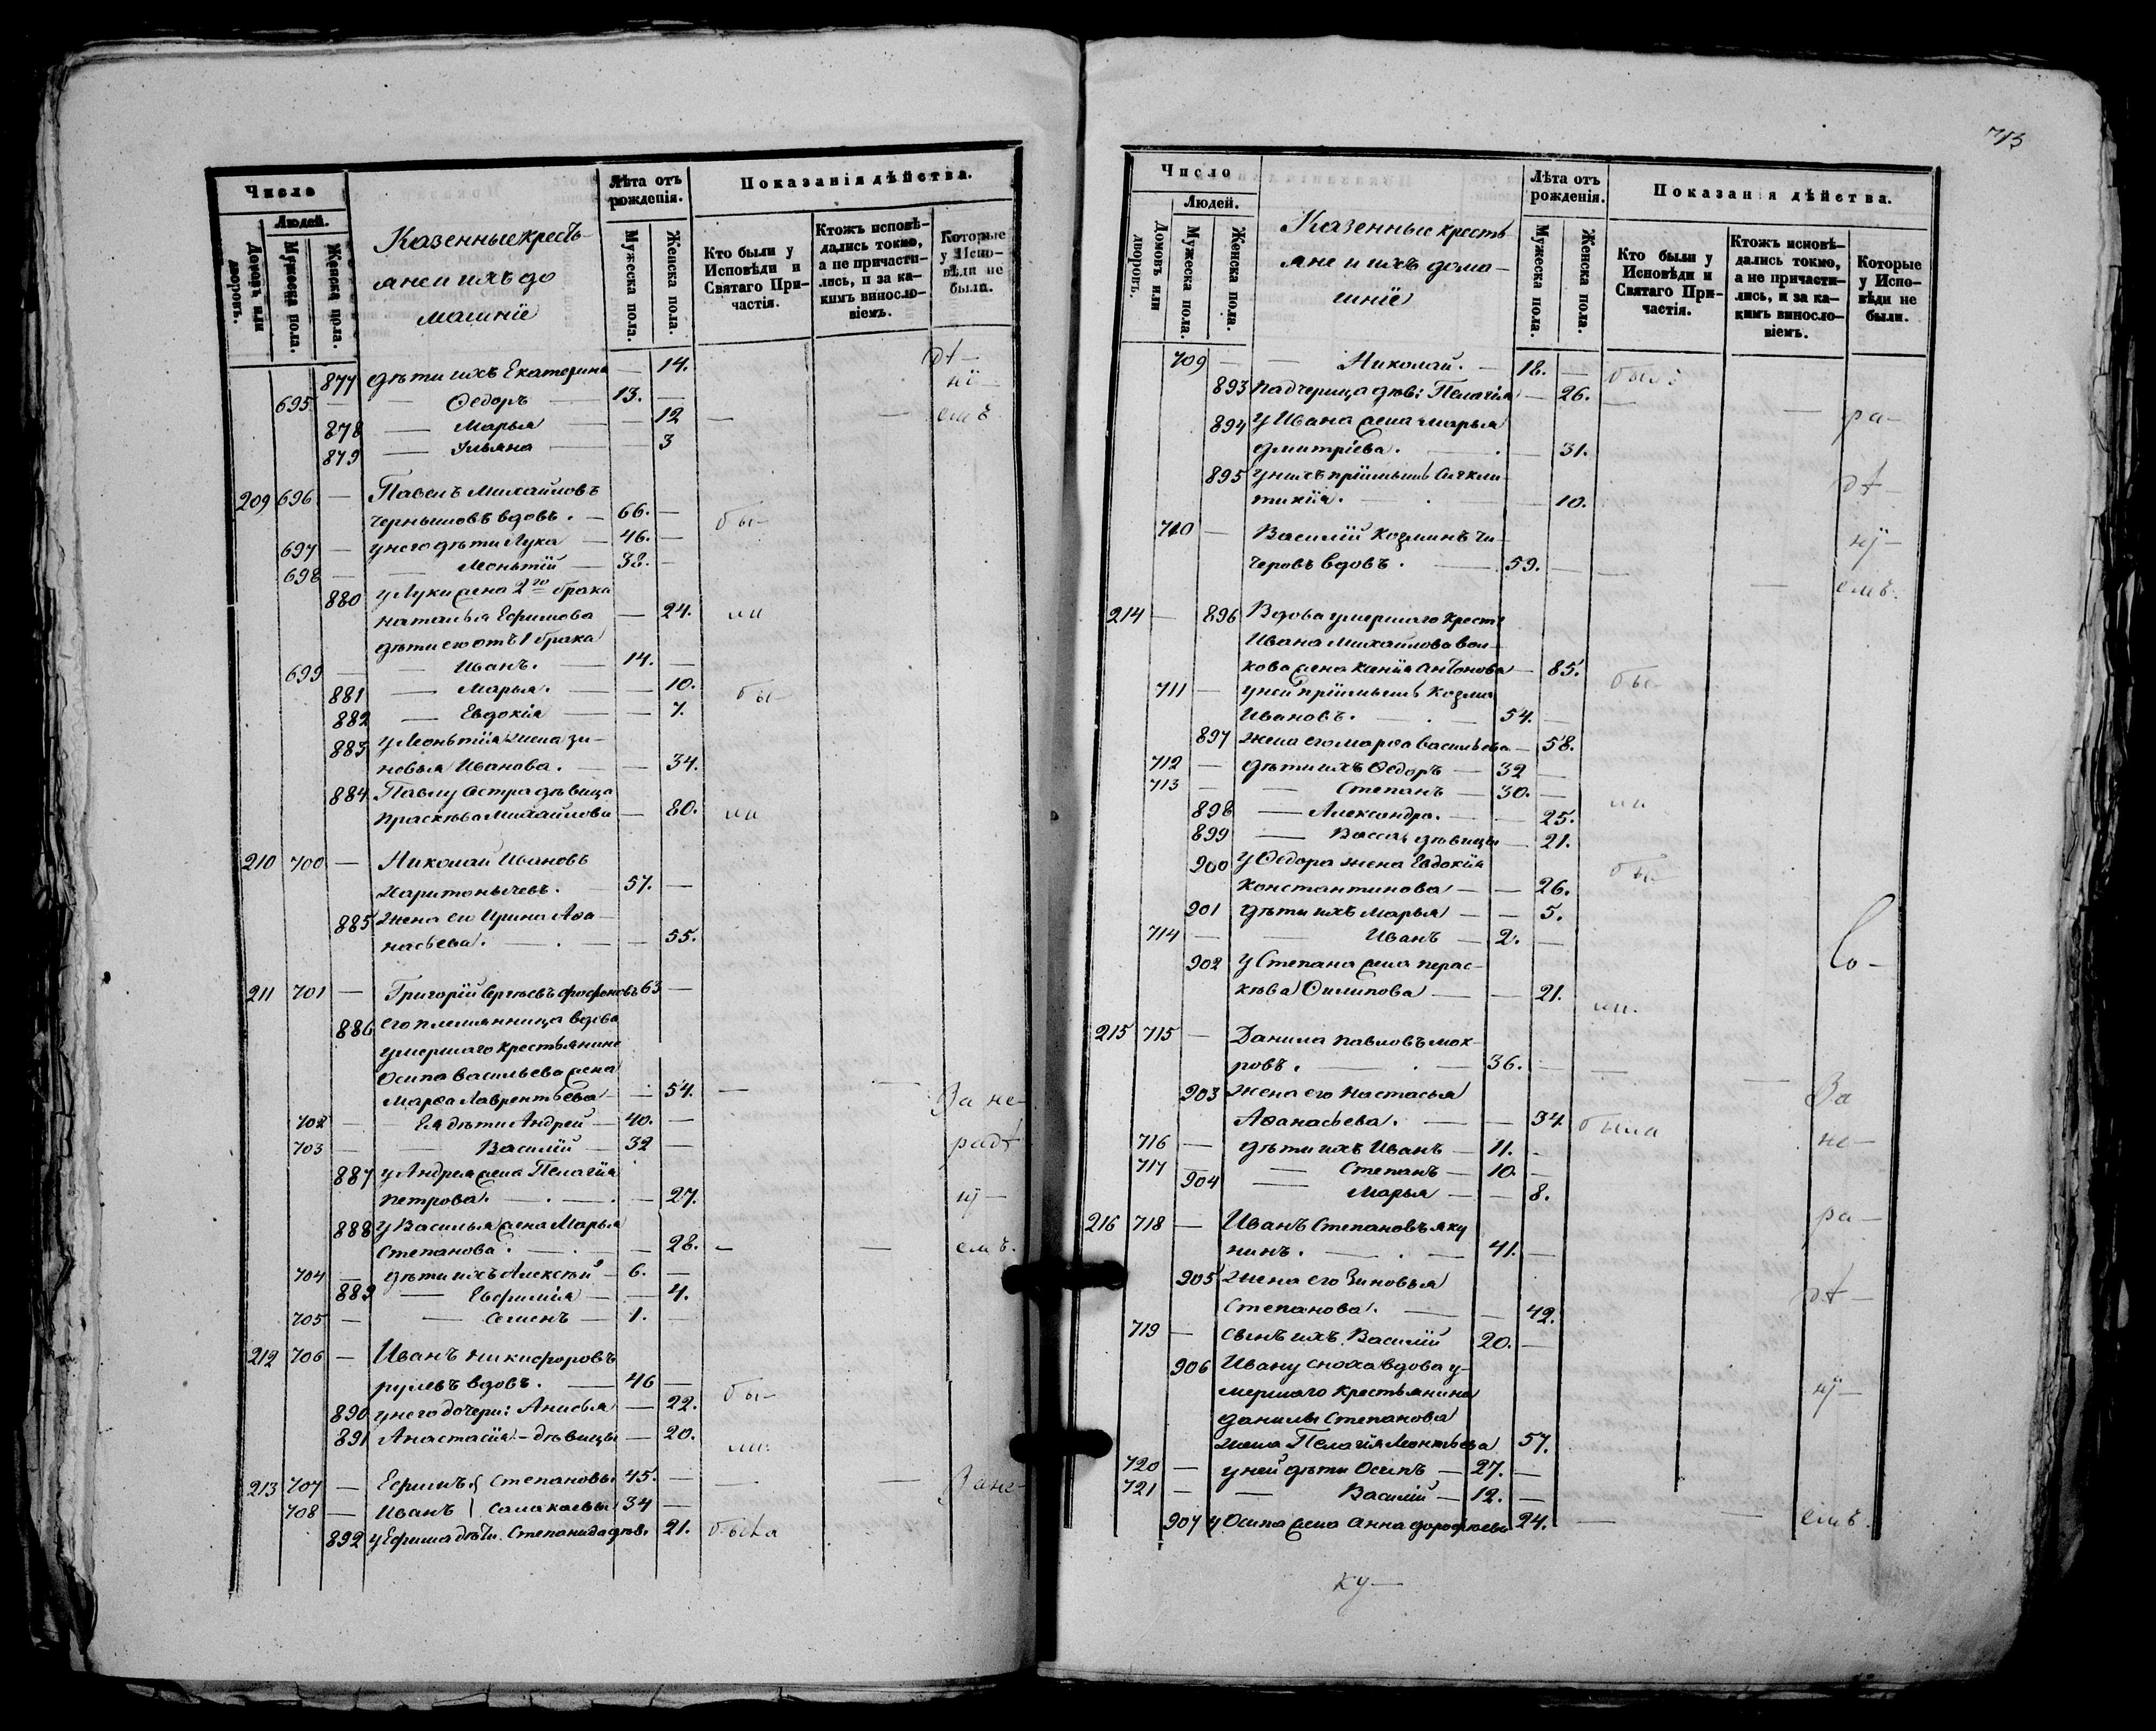 Число
Людей.
Домовъ или дворовъ.
Мужеска пола.
Женска пола.
Казенные кресть-
яне и ихъ до
машніе
Лѣта отъ рожденія.
Мужеска пола.
Женска пола.
Показанія дѣйства.
Кто были у Исповѣди и Святаго Причастія.
Ктожъ исповѣ-
дались токмо,
а не причасти-
лись, и за ка-
кимъ винosло-
віемъ.
Которые
у Испо-
вѣди не
были.
877 дѣти ихъ Екатерина — 14. от-
695. — Ѳедоръ — 13. — ні-
878 — Марья — 12 — емъ
879 — Ульяна — 3
209 696 — Павелъ Михайловъ
Чернышовъ вдовъ. — 66. — бы-
697 — у него дѣти Лука — 46. —
698 — Леонтій — 38. —
880 у Луки жена 2го брака
Наталья Ефимова — 24. ли
дѣти его отъ 1 брака
699 — Иванъ. — 14. —
881 — Марья. — 10. бы-
882 — Евдокія — 7.
883 у Леонтія жена Зи-
новья Иванова. — 34.
884 Павлу сестра дѣвица
Прасковья Михайлова — 80. ли
210 700 — Николай Ивановъ
Харитонычевъ. — 57. —
885 Жена его Ирина Аѳа-
насьева. — 55.
211 701 — Григорій Сергѣевъ 63 —
886 его племянница вдова
умершаго крестьянина
Осипа Васильева жена
Марѳа Лаврентьева — 54. — За не-
702 — Ея дѣти Андрей — 40. — радѣ
703 — Василій — 32 —
887 у Андрея жена Пелагія
Петрова. — 27. ні-
888 у Василья жена Марья
Степанова. — 28. — емъ.
704 — дѣти ихъ Алексѣй — 6. —
889 — Евфимія — 4.
705 — Семенъ — 1. —
212 706 — Иванъ Никифоровъ
Рулевъ вдовъ. — 46 — бы-
890 у него дочери: Анисья — 22.
891 Анастасія — дѣвицы — 20. ли.
213 707 — Ефимъ Степановы 45. — За не-
708 — Иванъ Салакаевы 34 —
892 у Ефима дѣти Степанида дѣв. 21. была
713
Число
Людей.
Домовъ или дворовъ.
Мужеска пола.
Женска пола.
Казенные кресть
яне и ихъ дома-
шніе
Лѣта отъ рожденія.
Мужеска пола.
Женска пола.
Показания дѣйства.
Кто были у Исповѣди и Святаго Причастія.
Ктожъ исповѣ-
дались токмо,
а не причасти-
лись, и за ка-
кимъ винosло-
віемъ.
Которые
у Испо-
вѣди не
были.
709 — Николай. — 18. — былъ
893 падчерица дѣв: Пелагія — 26. — ра-
894 у Ивана жена Марья
Дмитріева. — 31.
895 у нихъ пріимышъ
10. дѣ-
710 — Василій Козминъ Чи-
черовъ вдовъ. — 59. — ні-
емъ.
214 — 896 Вдова умершаго крест:
Ивана Михайлова Вол-
кова жена Ксенія Антонова — 85. бы-
711 — у ней пріимышъ Козма
Ивановъ. — 54. —
897 Жена его Марѳа Васильева — 58.
712 — дѣти ихъ Ѳедоръ — 32 —
713 — Степанъ — 30. — ли
898 — Александра. — 25.
899 — Васса, дѣвицы — 21.
900 у Ѳедора жена Евдокія
Константинова — 26. бы-
901 дѣти ихъ Марья — 5.
714 — Иванъ — 2. —
902 у Степана жена Перас-
кѣва Филипова — 21. ли.
215 715 — Данила Павловъ Мок-
ровъ. — 36. —
903 Жена его Настасья За
Аѳанасьева. — 34. была
716 — дѣти ихъ Иванъ — 11. — не-
717 — Степанъ — 10. —
904 — Марья — 8.
216 718 — Иванъ Степановъ Яку ра-
нинъ. — 41. —
905 Жена его Зиновья
Степанова. — 42. дѣ-
719 — сынъ ихъ Василій 20. —
906 Ивану сноха вдова у-
мершаго крестьянина ні-
Данилы Степанова
жена Пелагія Леонтьева 57.
720 — у ней дѣти Осипъ — 27. —
721 — Василій — 12. —
907 у Осипа жена Анна Дорофѣева 24. — емъ.
ку-